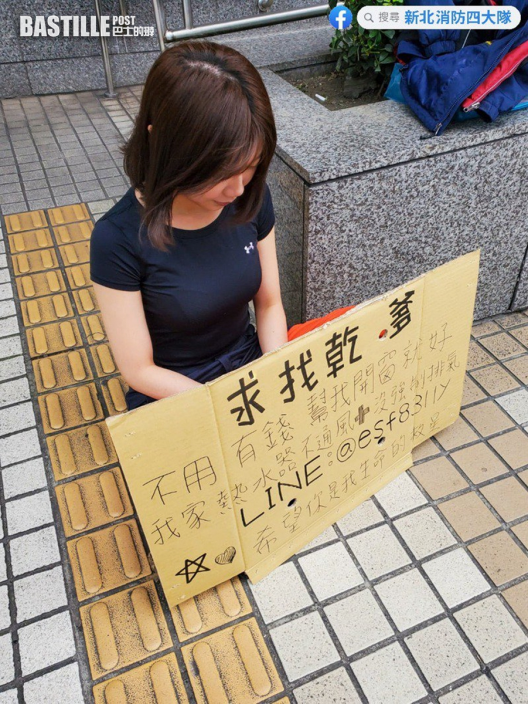 BASTILLE POST
巴士的遊
搜尋 新北消防四大隊
求找乾爹
不用有錢 幫我開窗就好
我家熱水器不通風+沒強制排氣
LINE:@est8311y
希望你是我生命的救星